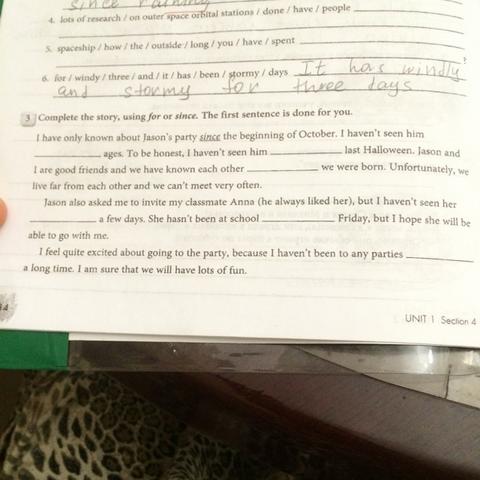 since raining
4. lots of research / on outer space orbital stations / done / have / people
5. spaceship / how / the / outside / long / you / have / spent
?
6. for / windy / three / and / it / has / been / stormy / days It has windly
and stormy for three days
3 Complete the story, using for or since. The first sentence is done for you.
I have only known about Jason's party since the beginning of October. I haven't seen him
____________ ages. To be honest, I haven't seen him ____________ last Halloween. Jason and
I are good friends and we have known each other ____________ we were born. Unfortunately, we
live far from each other and we can't meet very often.
Jason also asked me to invite my classmate Anna (he always liked her), but I haven't seen her
____________ a few days. She hasn't been at school ____________ Friday, but I hope she will be
able to go with me.
I feel quite excited about going to the party, because I haven't been to any parties ____________
a long time. I am sure that we will have lots of fun.
UNIT 1 Section 4